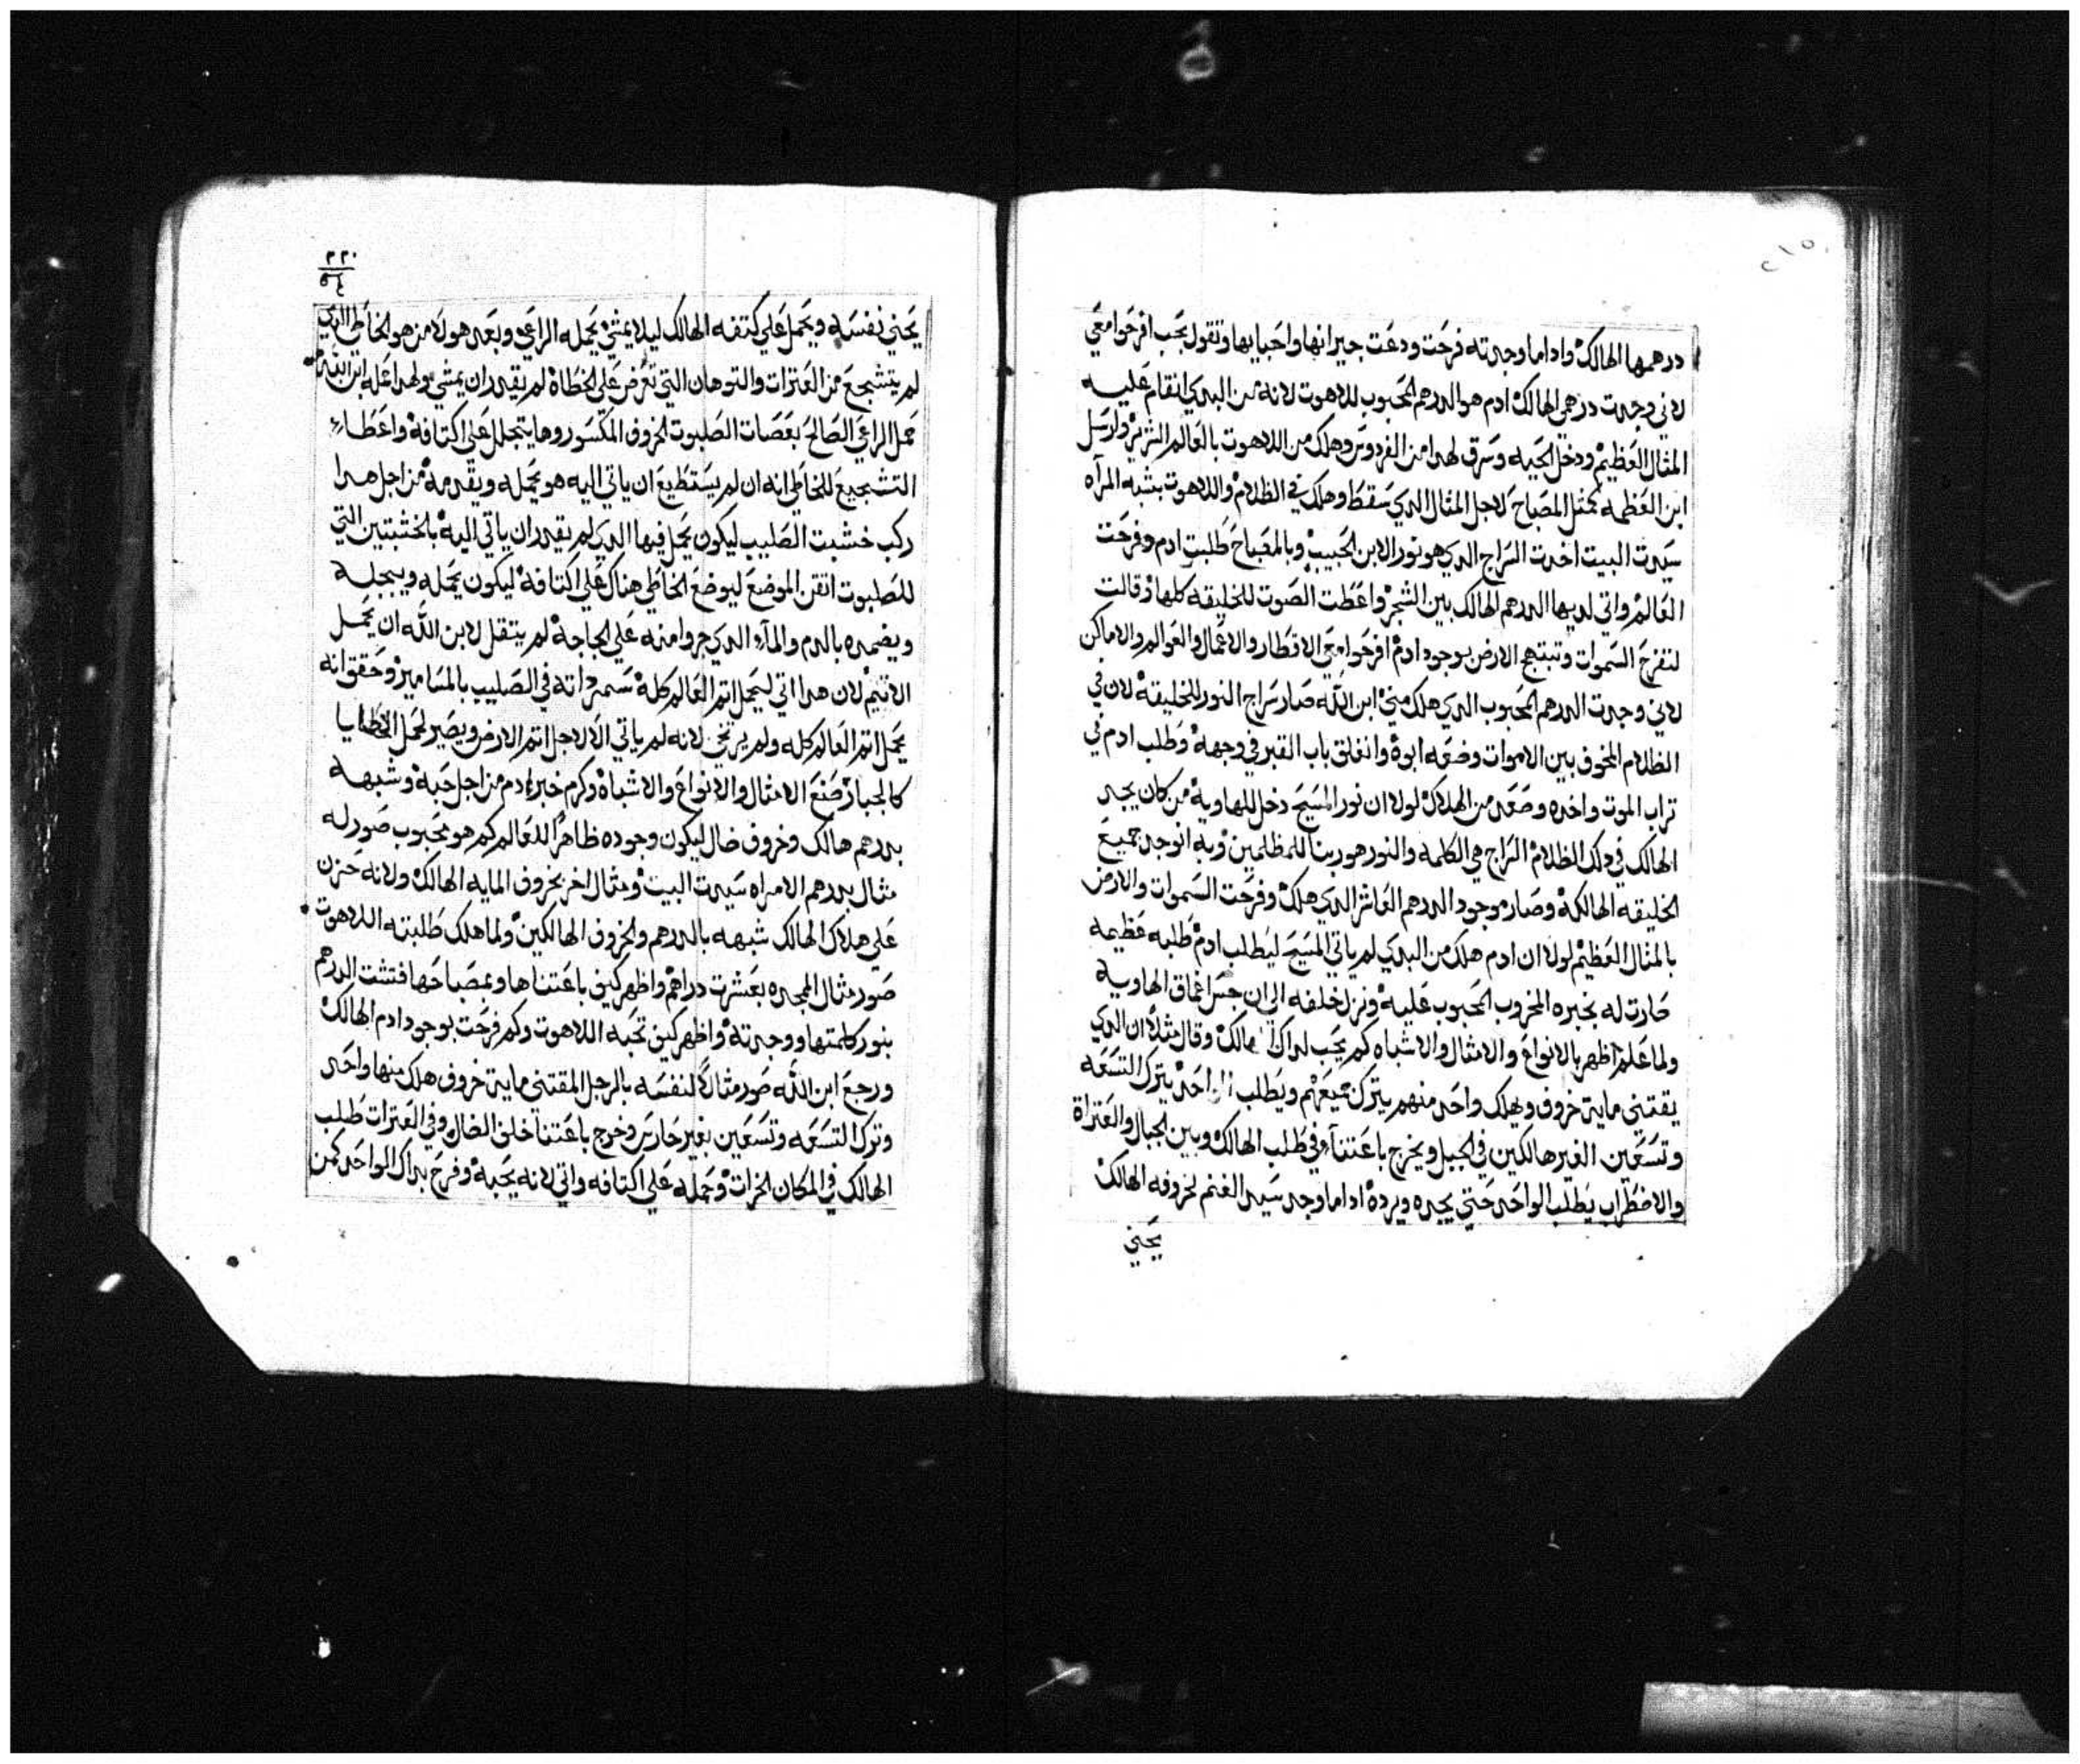 درهمها الهالك واداما وجدته فرحت ودعت جيرانها واحبابها وتقول يجب افرحوا معي
لاني وجدت درهمي الهالك ادم هو الدرهم المحبوب للاهوت لانه من البدي انقام عليه
المثال العظيم ودخل الحيه وسرق لهدا من الفردوس وهلك من اللاهوت بالعالم الشرير وارسل
ابن العظمه كمثل المصباح لاجل المثال الدي سقط وهلك في الظلام واللاهوت بشبه المرآه
سيدت البيت اخدت السراج الدي هو نور الابن الحبيب وبالمصباح طلبت ادم وفرحت
العالم واتي لديها الدرهم الهالك بين الشجر واعطت الصوت للخليقه كلها وقالت
لتفرح السموات وتبتهج الارض بوجود ادم افرحوا معي الاقطار والاعمال والعوالم والاماكن
لاني وجدت الدرهم المحبوب الدي هلك مني ابن الله صار سراج النور للخليقة لان في
الظلام المخوف بين الاموات وضعه ابوة وانغلق باب القبر في وجهة وطلب ادم في
تراب الموت واخده وصعد من الهلاك لولا ان نور المسيح دخل للهاوية من كان يجد
الهالك في دلك الظلام السراج هي الكلمه والنور هو ربنا للمظلمين وبه انوجد جميع
الخليقه الهالكة وصار موجود الدرهم العاشر الدي هلك وفرحت السموات والارض
بالمثال العظيم لولا ان ادم هلك من البدي لم ياتي المسيح ليطلب ادم طلبه عظيمه
صارت له بخبره المخروب المحبوب عليه ونزل خلفه الي ان جس اعماق الهاويه
ولما علم اظهر بالانواع والامثال والاشباه كم يحب لداك الهالك وقال مثلا ان الدي
يقتني ماية خروف ويهلك واحد منهم يترك جميعهم ويطلب الواحد يترك التسعه
وتسعين الغير هالكين في الجبل ويخرج باعتناء في طلب الهالك وبين الجبال والعتراة
والاضطراب يطلب الواحد حتي يجده ويرده اداما وجد سيد الغنم لخروفه الهالك
يحني
٢٢٠
٥٤
يحني نفسه ويحمل علي كتفه الهالك ليلا يمشي يحمله الراعي وبعد هولا من هو الخاطي الدي
لم يتشجع من العترات والتوهان التي تعرض علي الخطاة لم يقدر ان يمشي ولهدا عمله ابن الله
حمل الراعي الصالح بعصات الصلبوت لخروف المكسور وها يتجلل علي اكتافة واعطاء
التشجيع للخاطي انه ان لم يستطيع ان ياتي اليه هو يحمله ويقدمه من اجل هدا
ركب خشبت الصليب ليكون يحمل فيها الدي لم يقدر ان ياتي اليه بالخشبتين التي
للصلبوت اتقن الموضع ليوضع الخاطي هناك علي اكتافة ليكون يحمله ويبجله
ويضمده بالدم والماء الدي جروا منه علي الحاجة لم يتقل لابن الله ان يحمل
الاتيم لان هدا اتي ليحمل اتم العالم كلة سمر داته في الصليب بالمسامير وحقق انه
يحمل اتم العالم كله ولم يرتخي لانه لم ياتي الا لاجل اتم الارض ويصير لحمل الخطايا
كالجبار صنع الامثال والانواع والاشباة وكرم خبر ادم من اجل حبة وشبهه
بدرهم هالك وخروف ضال ليكون وجوده ظاهرا للعالم كم هو محبوب صور له
مثال بدرهم الامراه سيدت البيت ومثال اخر بخروف المايه الهالك ولانه حزن
علي هلاك الهالك شبهه بالدرهم والخروف الهالكين ولما هلك طلبته اللاهوت
صور مثال المجده بعشرت دراهم واظهر كيف باعتناها وبمصباحها فتشت الدرهم
بنور كلمتها ووجدتة واظهر كيف تحبه اللاهوت وكم فرحت بوجود ادم الهالك
ورجع ابن الله صور مثالا لنفسه بالرجل المقتني ماية خروف هلك منها واحد
وترك التسعه وتسعين بغير حارس وخرج باعتنا خلف الضال وفي العترات طلب
الهالك في المكان الخراب وحمله علي اكتافه واتي لانه يحبة وفرح بداك الواحد كمن